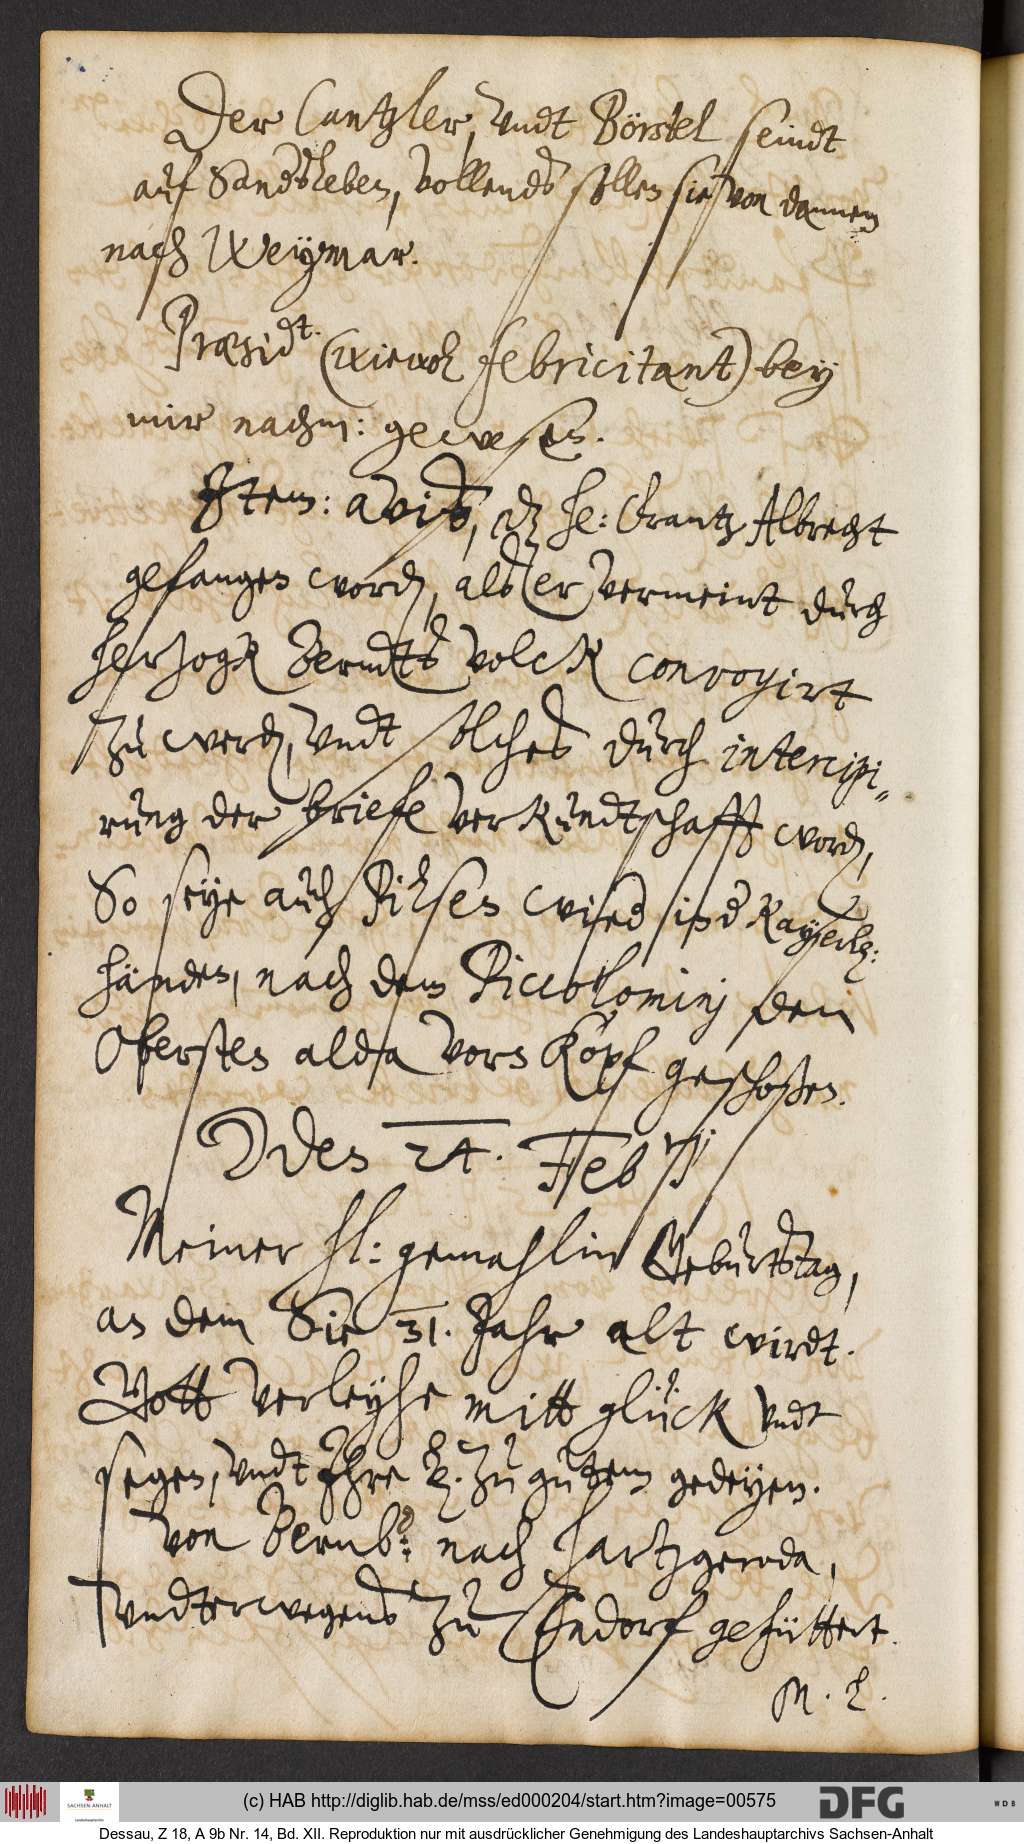 Der Cantzler, vndt Börstel seindt
auf Sandtsleben, vollends sollen sie von dannen
nach Weymar.
Præsidt. (wiewol febricitant) bey
mir nachm: gewesen.
Item: avis, dz he: Frantz Albrecht
gefangen word, als er vermeint durch
herzogk Berndts volck convoyirt
zu werd, vndt solches durch intercipi=
rung der briefe verkundtschafft word,
So seye auch Pilsen wied in d Kayserl:
händen, nach dem Piccolominj den
Obersten alda vorn Kopf geschoßen.
den 24. Feb:
Meiner hl: gemahlin Geburtstag,
an dem Sie 31. Jahr alt wirdt.
Gott verleyhe mitt glück vndt
segen, vndt Ihre L. zu gutem gedeyen.
Von Bernb: nach Hartzgeroda,
vndterwegens zu Endorf gefüttert.
M. L.
(c) HAB http://diglib.hab.de/mss/ed000204/start.htm?image=00575
SACHSEN-ANHALT
Landeshauptarchiv
DFG
WDB
Dessau, Z 18, A 9b Nr. 14, Bd. XII. Reproduktion nur mit ausdrücklicher Genehmigung des Landeshauptarchivs Sachsen-Anhalt